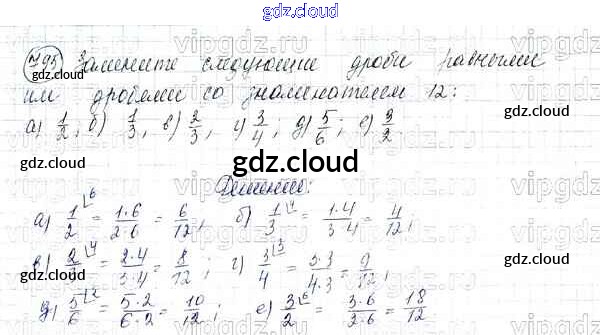 gdz.cloud
№95 Замените следующие дроби равными
им дробями со знаменателем 12:
а) 1/2, б) 1/3, в) 2/3, г) 3/4; д) 5/6; е) 3/2.
gdz.cloud
gdz.cloud
gdz.cloud
gdz.cloud
Решение:
а) 1/2 \6 = 1·6/2·6 = 6/12; б) 1/3 \4 = 1·4/3·4 = 4/12;
в) 2/3 \4 = 2·4/3·4 = 8/12; г) 3/4 \3 = 3·3/4·3 = 9/12;
gdz.cloud
gdz.cloud
д) 5/6 \2 = 5·2/6·2 = 10/12; е) 3/2 \6 = 3·6/2·6 = 18/12
gdz.cloud